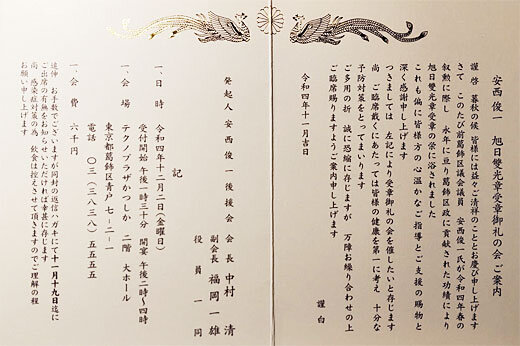 安西俊一 旭日雙光章受章御礼の会ご案内
謹啓 暮秋の候 皆様には益々ご清祥のこととお慶び申し上げます
さて このたび前葛飾区議会議員 安西俊一氏が令和四年春の
叙勲に際し 永年に亘り葛飾区政に貢献された功績により
旭日雙光章受章の栄に浴されました
これも偏に皆様方の心温かなご指導とご支援の賜物と
深く感謝申し上げます
つきましては 左記により受章御礼の会を催したいと存じます
尚 ご臨席戴くにあたっては皆様の健康を第一に考え 十分な
予防対策をとってまいります
ご多用の折 誠に恐縮に存じますが 万障お繰り合わせの上
ご臨席賜りますようご案内申し上げます
謹白
令和四年十一月吉日
発起人 安西俊一後援会 会長 中村 清
副会長 福岡一雄
役員一同
記
一、日時 令和四年十二月二日(金曜日)
受付開始 午後一時三十分 開宴 午後二時〜四時
一、会場 テクノプラザかつしか 二階 大ホール
東京都葛飾区青戸 七-二-一
電話 〇三(三八三八)五五五五
一、会費 六千円
追伸 お手数でございますが同封の返信ハガキにて十一月十九日迄に
ご出席の有無をお知らせいただければ幸甚に存じます
尚 感染症対策の為 飲食は控えさせて頂きますのでご理解の程
お願い申し上げます